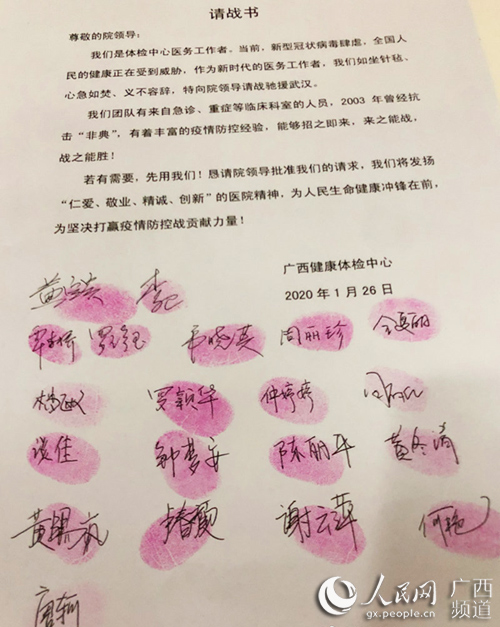 请战书
尊敬的院领导:
我们是体检中心医务工作者。当前，新型冠状病毒肆虐，全国人
民的健康正在受到威胁，作为新时代的医务工作者，我们如坐针毡、
心急如焚、义不容辞，特向院领导请战驰援武汉。
我们团队有来自急诊、重症等临床科室的人员，2003 年曾经抗
击“非典”，有着丰富的疫情防控经验，能够招之即来，来之能战，
战之能胜！
若有需要，先用我们！恳请院领导批准我们的请求，我们将发扬
“仁爱、敬业、精诚、创新”的医院精神，为人民生命健康冲锋在前，
为坚决打赢疫情防控战贡献力量！
广西健康体检中心
2020 年 1 月 26 日
韦晓英 周丽珍
罗颖华 仲婷婷
谈佳 钟梦安 陈丽华
谢云萍 何艳
人民网 广西
gx.people.cn 频道